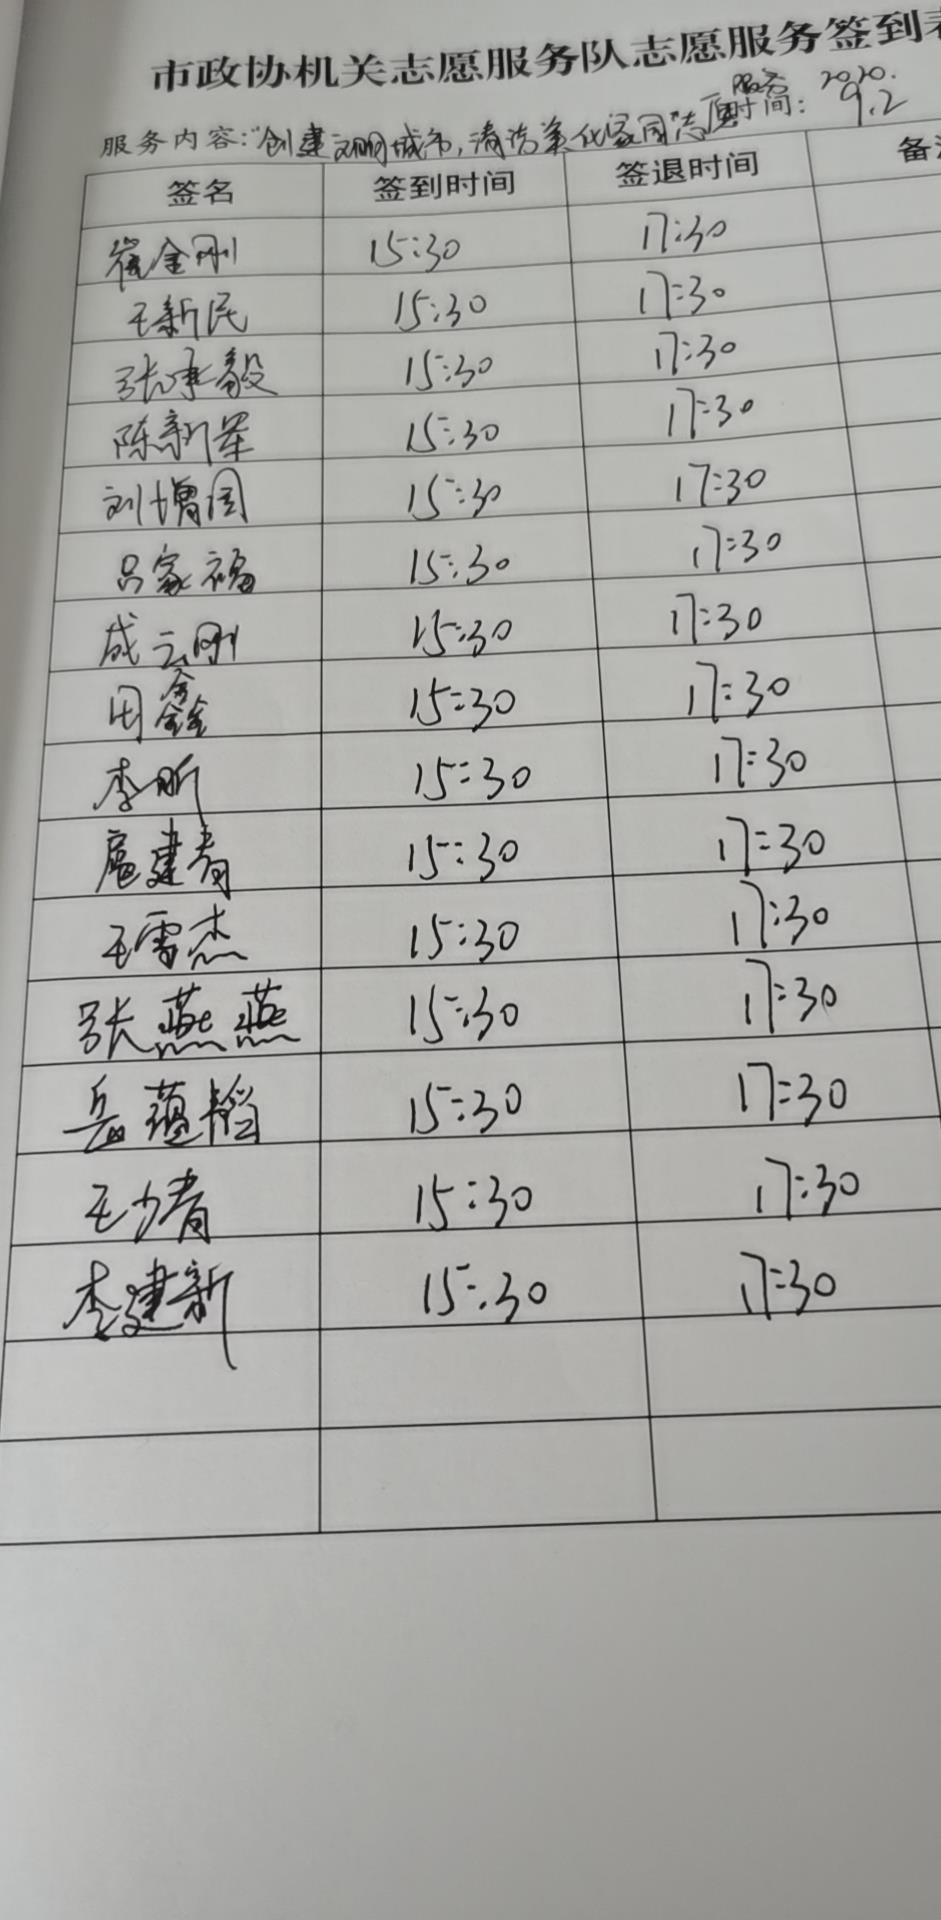 市政协机关志愿服务队志愿服务签到表
服务内容:“创建文明城市,清洁美化家园”志愿服务 时间: 2020.9.2
签名 签到时间 签退时间 备注
崔金刚 15:30 17:30
王新民 15:30 17:30
张承毅 15:30 17:30
陈新军 15:30 17:30
刘增国 15:30 17:30
吕家福 15:30 17:30
成云刚 15:30 17:30
田鑫 15:30 17:30
李昕 15:30 17:30
扈建青 15:30 17:30
王雷杰 15:30 17:30
张燕燕 15:30 17:30
岳蕴韬 15:30 17:30
王少青 15:30 17:30
李建新 15:30 17:30